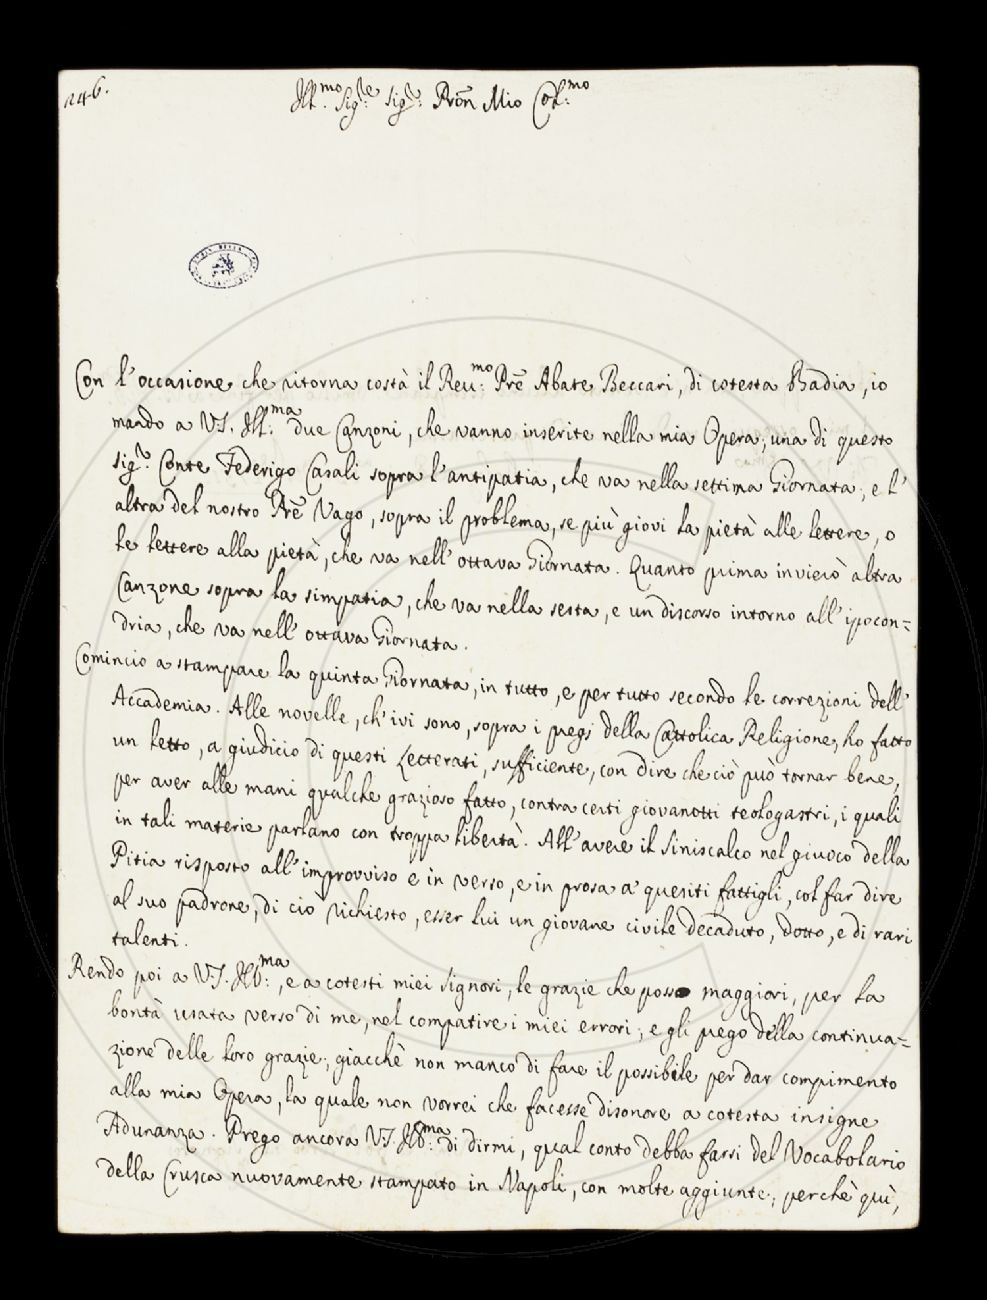 246.
Ill.mo Sig.re Sig.r Pròn Mio Col.mo
Con l'occasione che ritorna costà il Reu.mo Prē Abate Beccari, di cotesta Badia, io
mando a V.S. Ill.ma due Canzoni, che vanno inserite nella mia Opera; una di questo
Sig.r Conte Federigo Casali sopra l'antipatia, che va nella settima Giornata; e l'
altra del nostro Prē Vago, sopra il problema, se più giovi la pietà alle lettere, o
le lettere alla pietà, che va nell'ottava Giornata. Quanto prima invierò altra
Canzone sopra la simpatia, che va nella sesta, e un discorso intorno all'ipocon=
dria, che va nell'ottava Giornata.
Comincio a stampare la quinta Giornata, in tutto, e per tutto secondo le correzioni dell'
Accademia. Alle novelle, ch'ivi sono, sopra i pregi della Cattolica Religione, ho fatto
un letto, a giudicio di questi Letterati, sufficiente, con dire che ciò può tornar bene,
per aver alle mani qualche grazioso fatto, contra certi giovanotti teologastri, i quali
in tali materie parlano con troppa libertà. All'avere il Siniscalco nel giuoco della
Pitia risposto all'improvviso e in verso, e in prosa a' quesiti fattigli, col far dire
al suo padrone, di ciò richiesto, esser lui un giovane civile decaduto, dotto, e di rari
talenti.
Rendo poi a V.S. Ill.ma, e a cotesti miei Signori, le grazie che posso maggiori, per la
bontà usata verso di me, nel compatire i miei errori; e gli prego della continua=
zione delle loro grazie; giacchè non manco di fare il possibile per dar compimento
alla mia Opera, la quale non vorrei che facesse disonore a cotesta insigne
Adunanza. Prego ancora V.S. Ill.ma di dirmi, qual conto debba farsi del Vocabolario
della Crusca nuovamente stampato in Napoli, con molte aggiunte; perchè quì,